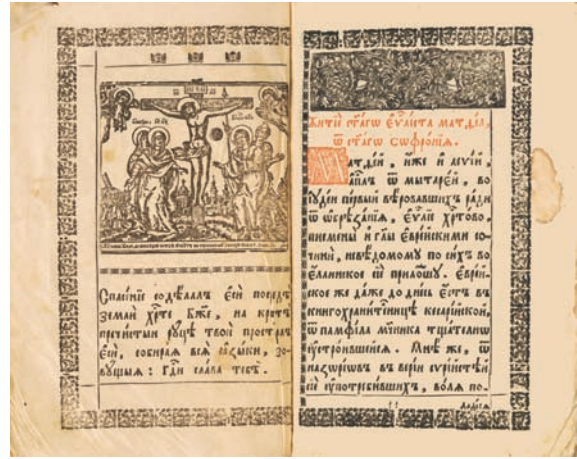 Спасе́нїе содѣ́лалъ є҆сѝ посредѣ̀
землѝ хрⷭ҇тѐ бж҃е, на крⷭ҇тѣ̀
пречи́стыи рꙋ́цѣ твоѝ просте́ръ
є҆сѝ, собира́ѧ всѧ̑ ꙗ҆зы́ки, зо-
вꙋ́щыѧ: гдⷭ҇и сла́ва тебѣ̀.
Житїѐ ст҃а́гѡ є҆ѵⷢ҇лі́ста матѳе́а,
ѿ ст҃а́гѡ сѡфро́нїѧ.
Матѳе́й, и҆́же и҆ леѵі́й,
а҆пⷭ҇лъ ѿ мытаре́й, во
і҆ꙋде́и пе́рвый вѣ́ровавшихъ ра́ди
ѿ ѡ҆брѣ́занїѧ, є҆ѵⷢ҇лїе хрⷭ҇то́во,
писмены̀ и҆ гл҃ы є҆вре́йскими со-
чинѝ, невѣ́домомꙋ по си́хъ во
є҆́ллинское сїѐ прило́шꙋ. є҆вре́й-
ское же да́же до дне́сь є҆́сть въ
книгохрани́тенницѣ кесарі́йской,
ѿ памфі́ла мч҃ника тща́телнѡ
ᲂу҆стро́ившейсѧ. Мнѣ́ же, ѿ
назѡрѣ́ѡвъ въ ве́рїи сѵрі́йстѣй
сїѐ ᲂу҆потреби́вшихъ, во́лѧ по-